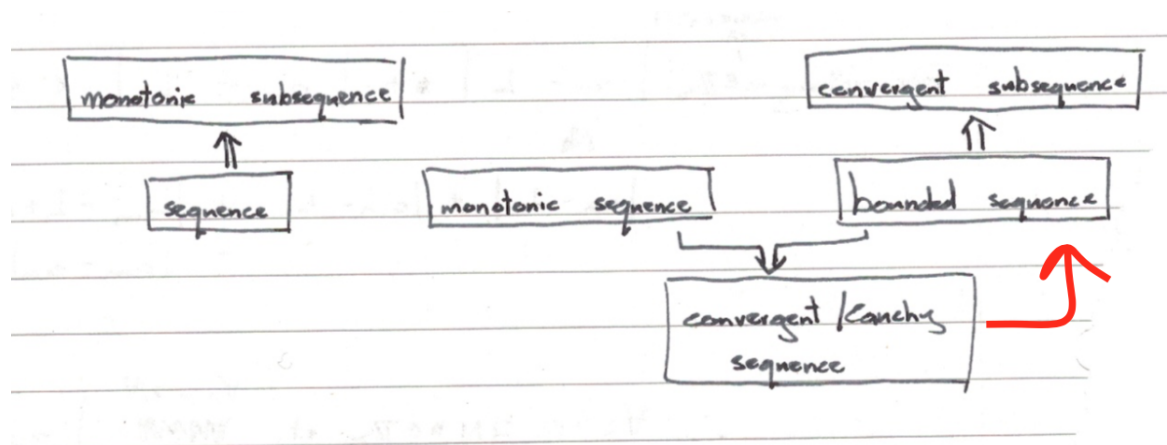 monotonic subsequence
convergent subsequence
sequence
monotonic sequence
bounded sequence
convergent/Cauchy
sequence